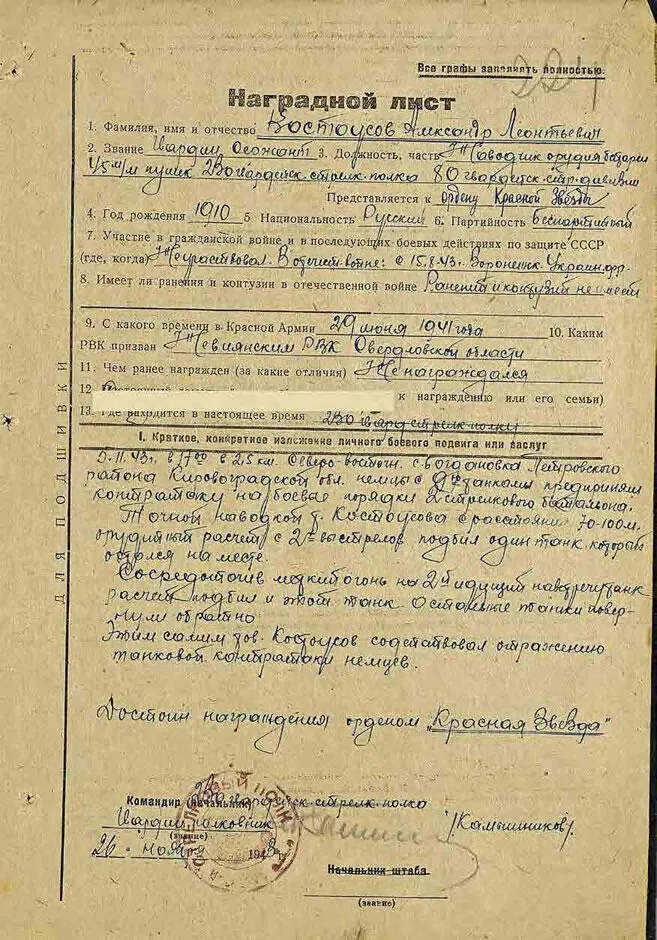 Все графы заполнять полностью.
224
Наградной лист
1. Фамилия, имя и отчество Костоусов Александр Леонтьевич
2. Звание Гвардии Сержант 3. Должность, часть Наводчик орудия батареи
45 м/м пушек 230 гвардейск. стрелк. полка 80 гвардейск. стр. дивизии
Представляется к ордену Красной Звезды
4. Год рождения 1910 5. Национальность Русский 6. Партийность беспартийный
7. Участие в гражданской войне и в последующих боевых действиях по защите СССР
(где, когда) Не участвовал. В отечеств. войне: с 15.8.43г. Воронежск. Украин. фр.
8. Имеет ли ранения и контузии в отечественной войне Ранений и контузий не имеет
9. С какого времени в Красной Армии 29 июня 1941 года 10. Каким
РВК призван Невиянским РВК Свердловской области
11. Чем ранее награжден (за какие отличия) Не награждался
12
к награждению или его семьи)
13. Где находится в настоящее время 230 гвард. стрелк. полку
I. Краткое, конкретное изложение личного боевого подвига или заслуг
5.11.43г. в 17 00 в 2,5 км. Северо-восточн. с. Богдановка Петровского
района Кировоградской обл. немцы с танками предприняли
контратаку на боевые порядки 2 стрелкового батальона.
Точной наводкой т. Костоусова с расстояния 70-100м.
орудийный расчет с 2х выстрелов подбил один танк, который
остался на месте.
Сосредоточив меткий огонь на 2й идущий навстречу танк
расчет подбил и этот танк. Остальные танки повер-
нули обратно
Этим самим тов. Костоусов содействовал отражению
танковой контратаки немцев.
Достоин награждения орденом „Красная Звезда"
ДЛЯ ПОДШИВКИ
Командир (начальник) 230 гвардейск. стрелк. полка
Гвардии полковник /Камышников/.
(звание)
26 ноября 1943 г.
Начальник штаба
(звание)